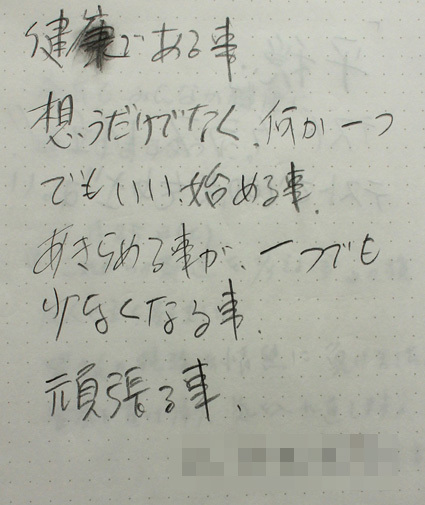 健康である事
想うだけでなく、何か一つ
でもいい、始める事。
あきらめる事が、一つでも
少なくなる事。
頑張る事、